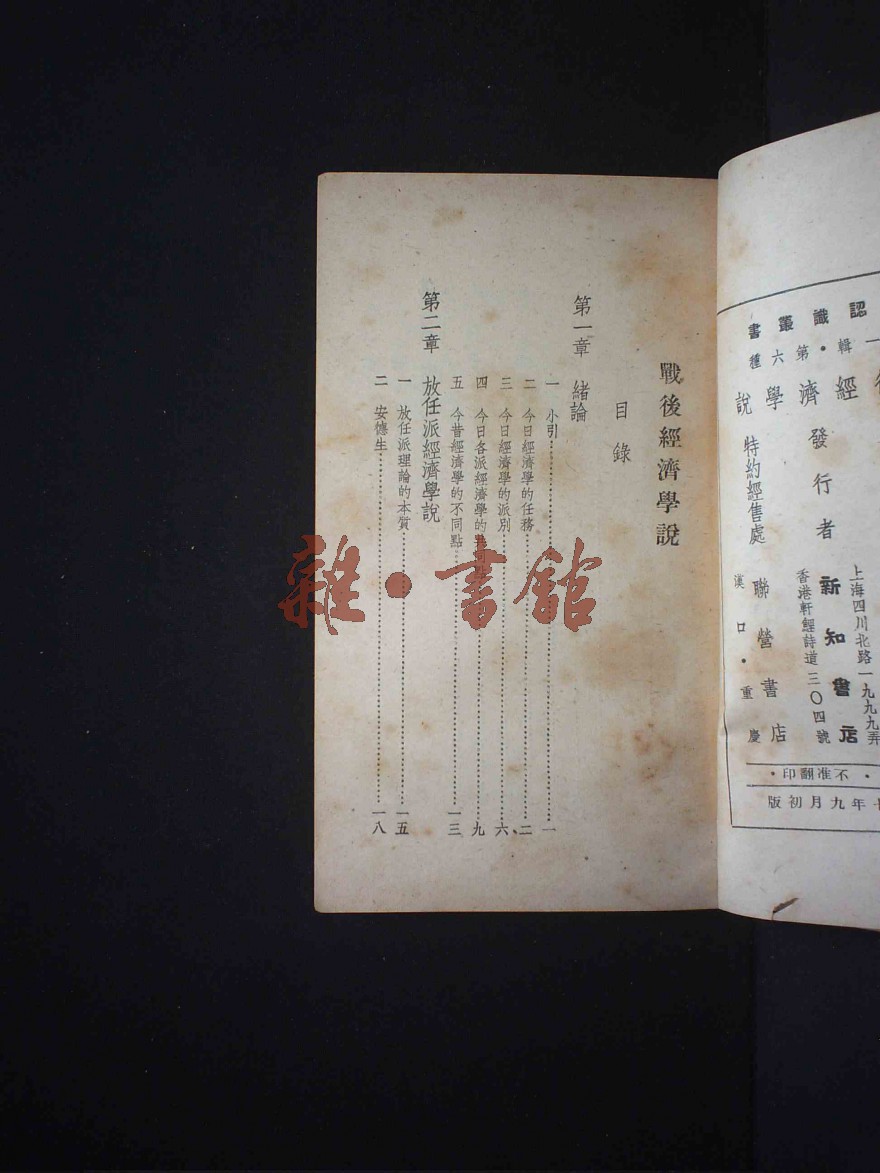 認識叢書
一輯・第六種
經濟學說
發行者 新知書店
上海四川北路一九九九弄
香港軒鯉詩道三〇四號
特約經售處 聯營書店
漢口・重慶
・不准翻印・
年九月初版
戰後經濟學說
目錄
第一章 緒論
一 小引……一
二 今日經濟學的任務……二
三 今日經濟學的派別……六
四 今日各派經濟學的……九
五 今昔經濟學的不同點……一三
第二章 放任派經濟學說
一 放任派理論的本質……一五
二 安德生……一八
雜・書館